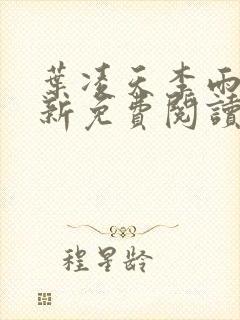 葉凌天李雨
新免費閱讀
程星龄